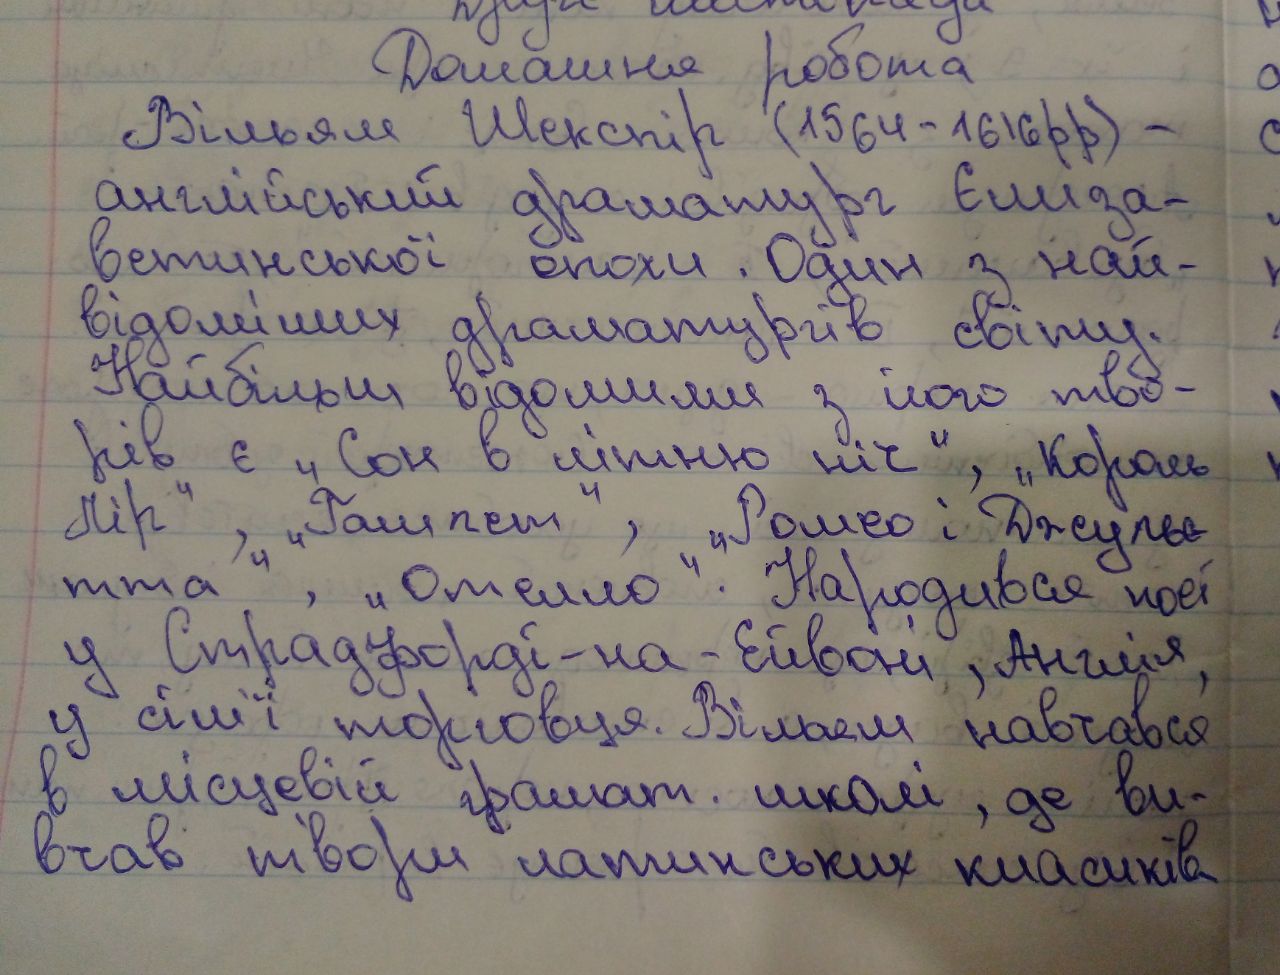 Друге листопада
Домашня робота
Вільям Шекспір (1564-1616рр) -
англійський драматург Єлиза-
ветинської епохи. Один з най-
відоміших драматургів світу.
Найбільш відомими з його тво-
рів є „Сон в літню ніч", „Король
Лір", „Гамлет", „Ромео і Джульє-
тта", „Отелло". Народився поет
у Страдфорді-на-Ейвоні, Англія,
у сім'ї торговця. Вільям навчався
в місцевій грамат. школі, де ви-
вчав твори латинських класиків